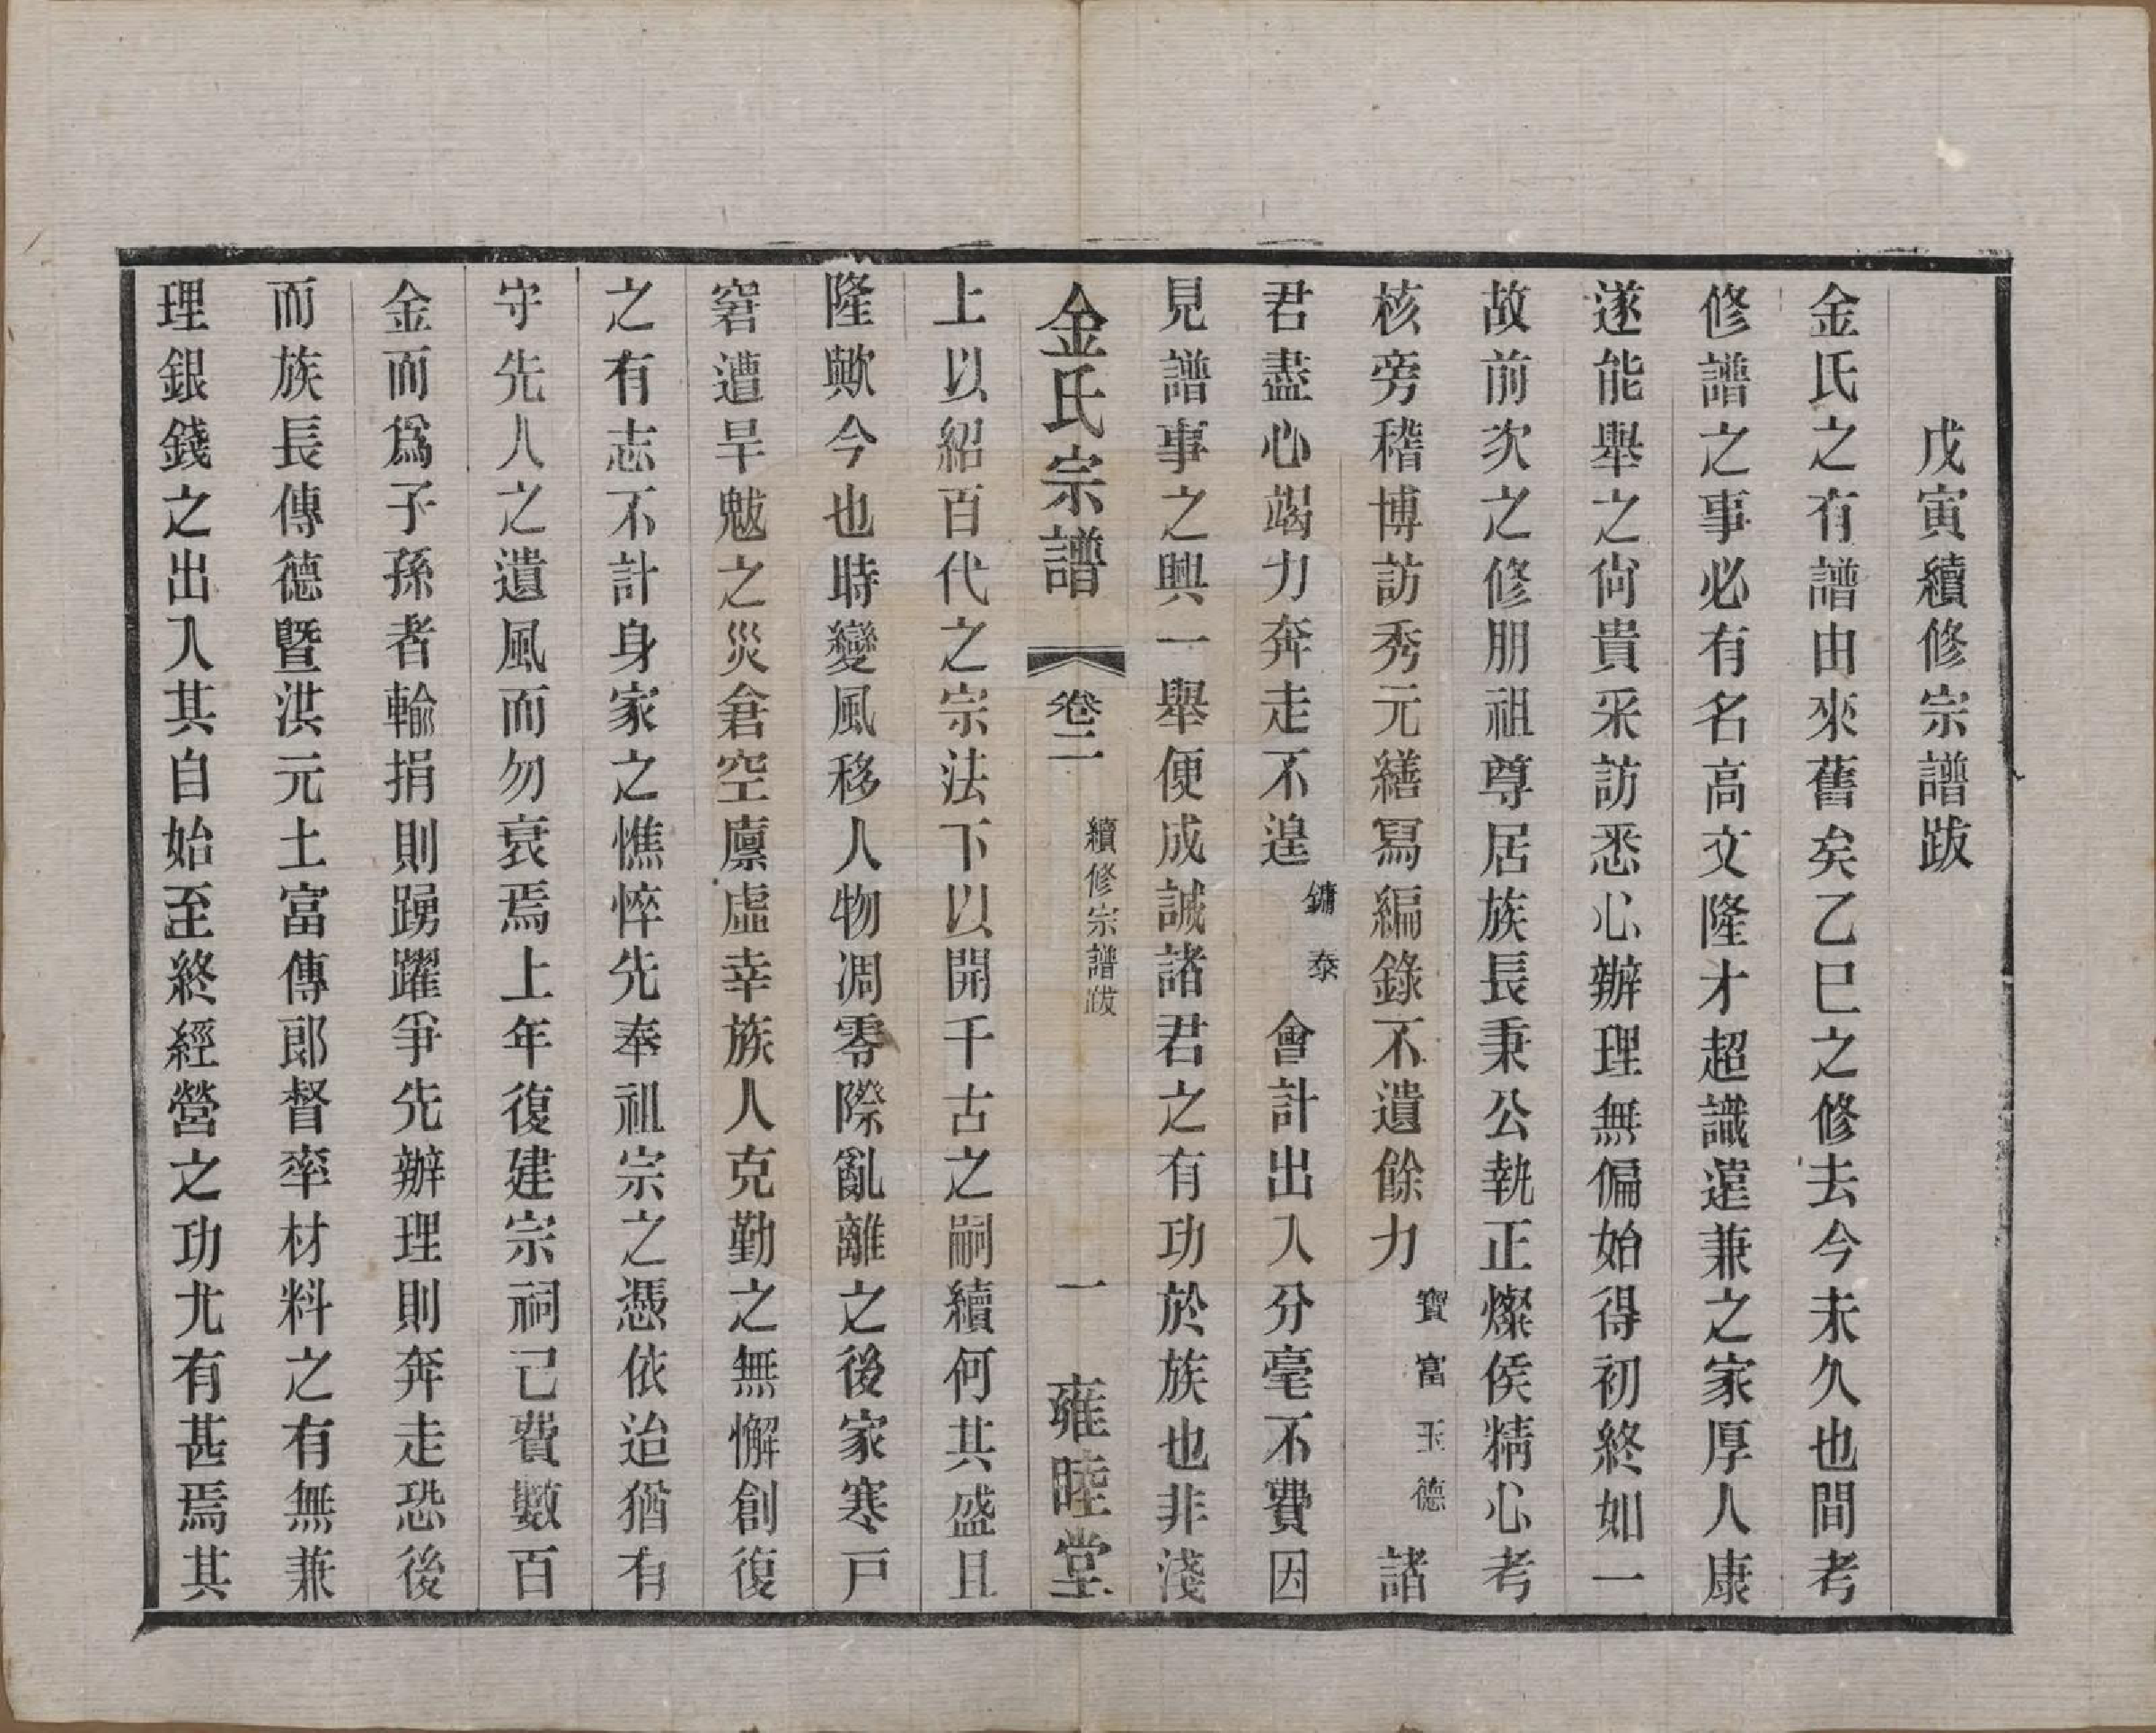 戊寅續修宗譜跋
金氏之有譜由來舊矣乙巳之修去今未久也間考
修譜之事必有名高文隆才超識遠兼之家厚人康
遂能舉之尙貴采訪悉心辦理無偏始得初終如一
故前次之修朋祖尊居族長秉公執正燦侯精心考
核旁稽博訪秀元繕寫編錄不遺餘力寶富玉德諸
君盡心竭力奔走不遑鏞泰會計出入分毫不費因
見譜事之興一舉便成誠諸君之有功於族也非淺
金氏宗譜 卷二 續修宗譜跋 一 雍睦堂
上以紹百代之宗法下以開千古之嗣續何其盛且
隆歟今也時變風移人物凋零際亂離之後家寒戸
窘遭旱魃之災倉空廩虛幸族人克勤之無懈創復
之有志不計身家之憔悴先奉祖宗之憑依迨猶有
守先人之遺風而勿衰焉上年復建宗祠己費數百
金而爲子孫者輸捐則踴躍爭先辦理則奔走恐後
而族長傳德暨洪元土富傳郎督率材料之有無兼
理銀錢之出入其自始至終經營之功尤有甚焉其